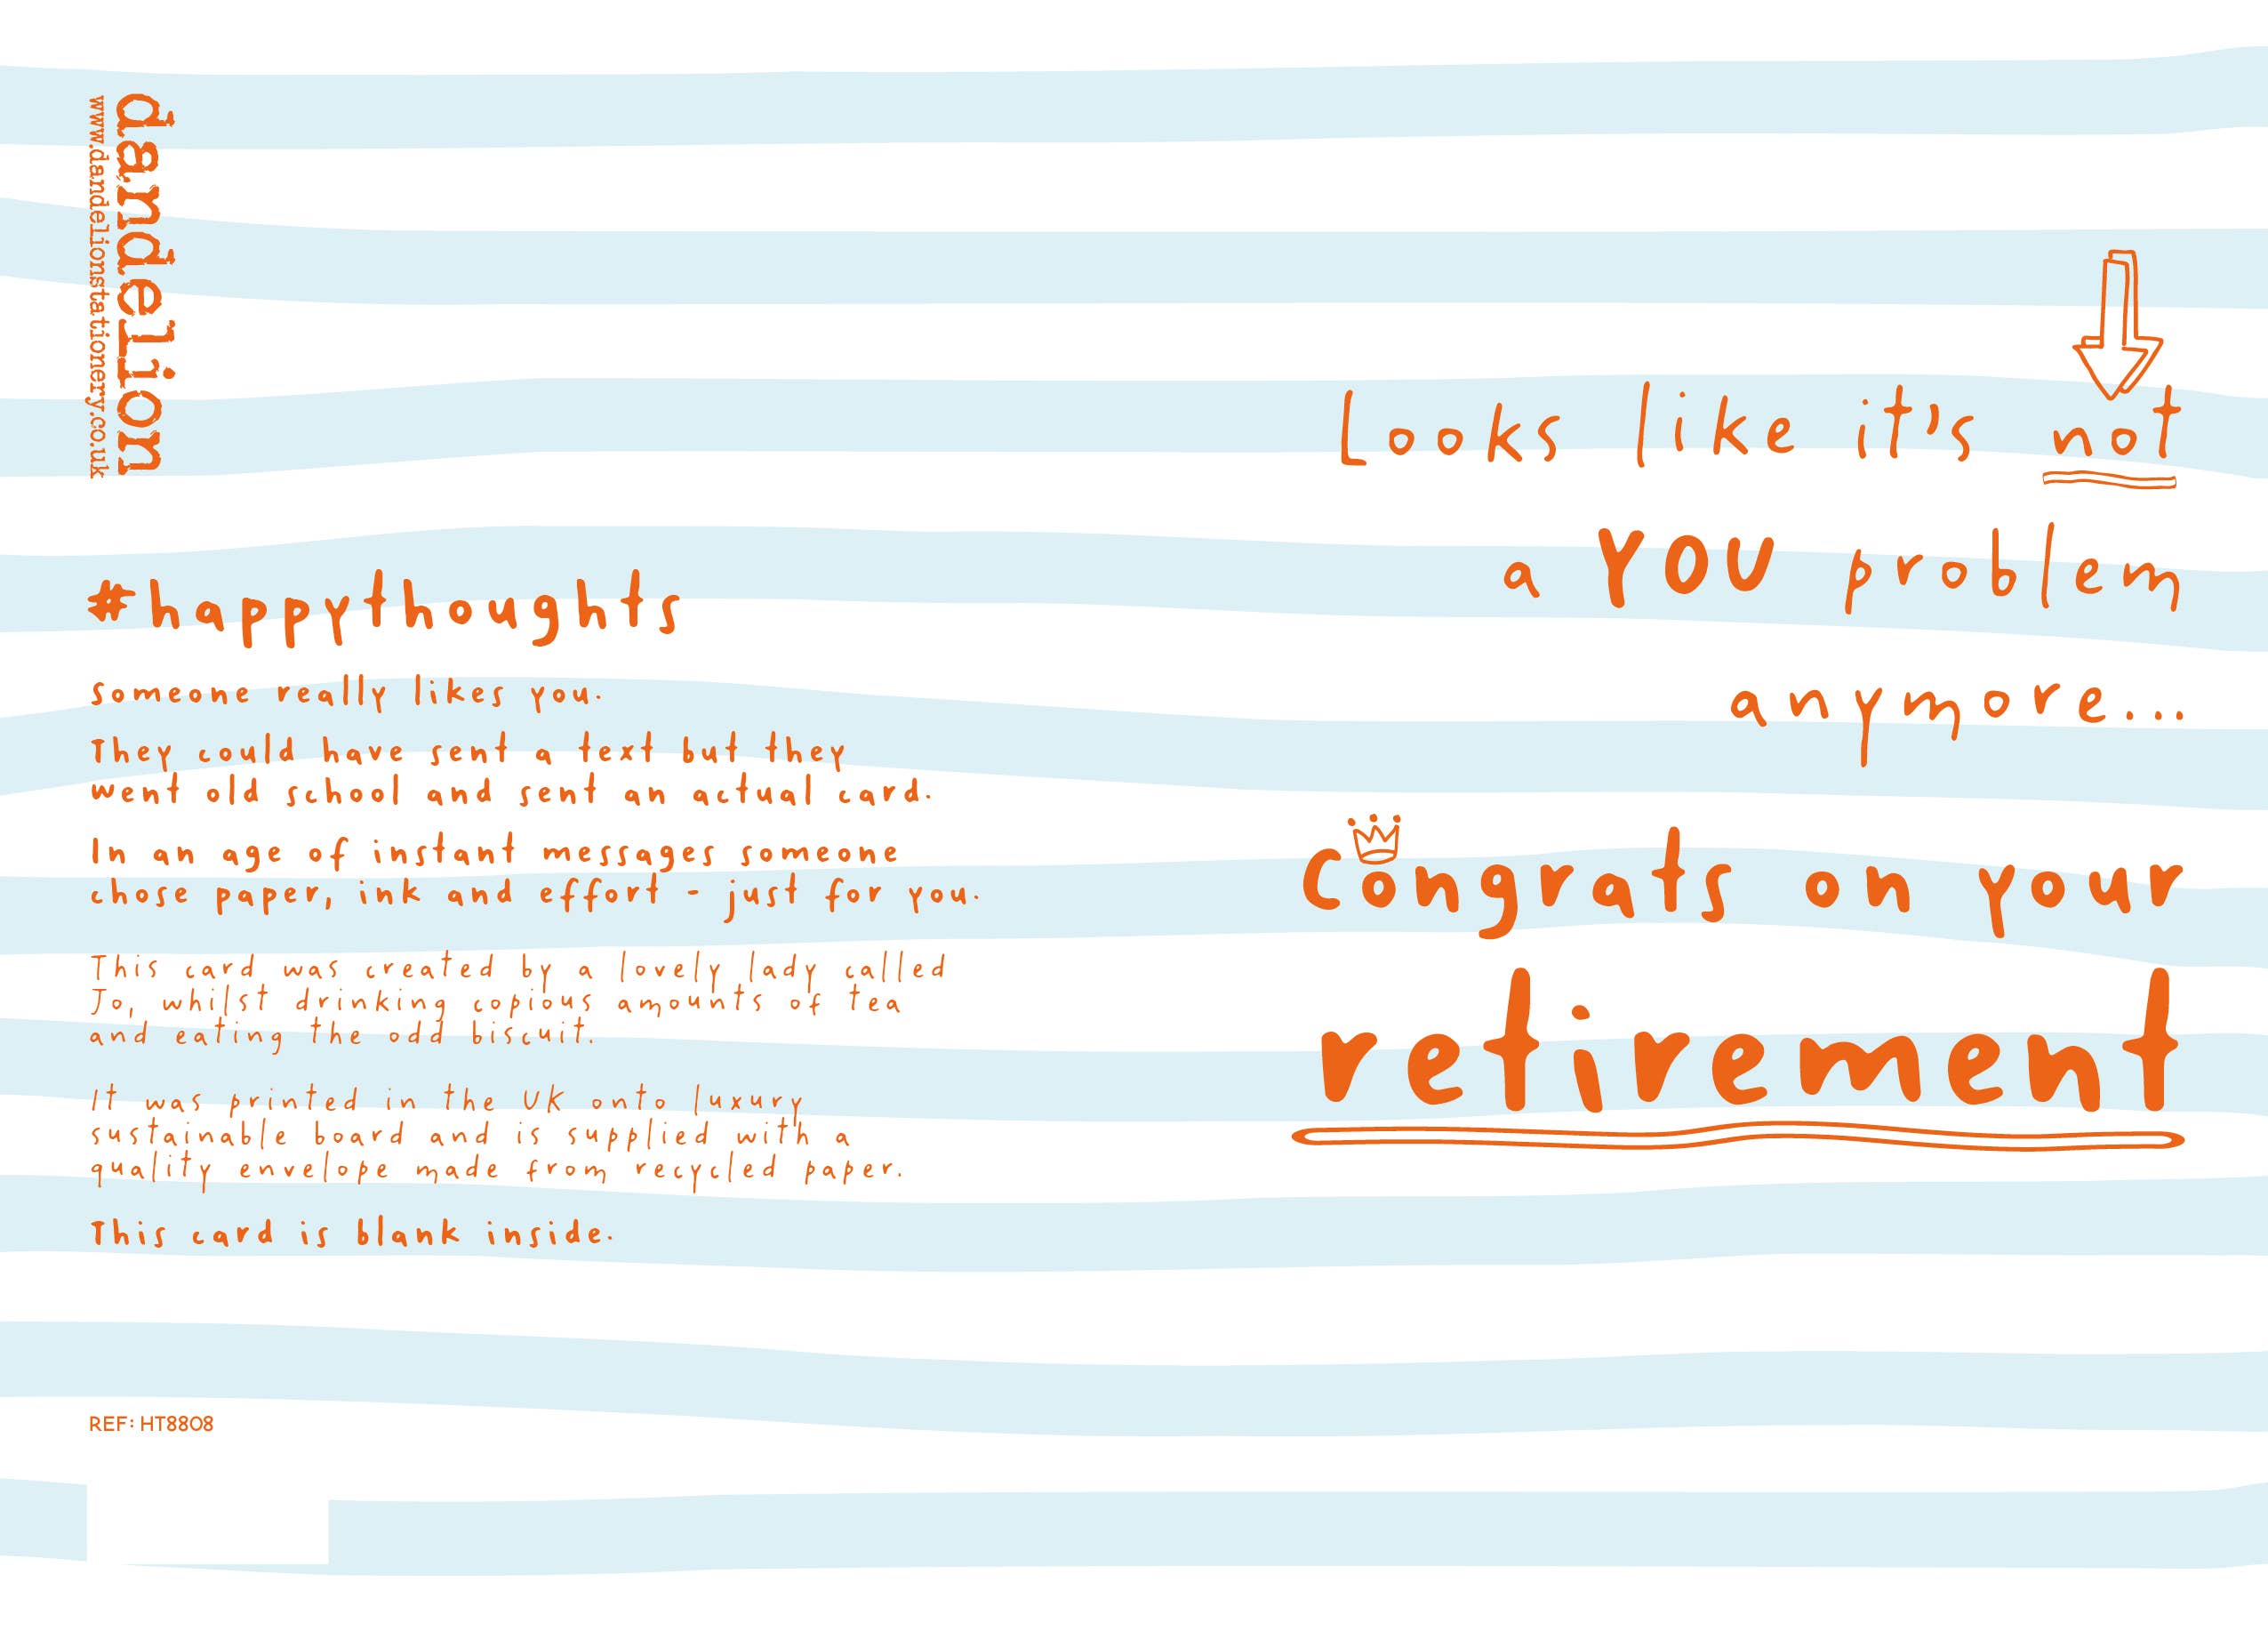 dandelion
www.dandelionstationery.co.uk
#happythoughts
Someone really likes you.
They could have sent a text but they
went old school and sent an actual card.
In an age of instant messages someone
chose paper, ink and effort - just for you.
This card was created by a lovely lady called
Jo, whilst drinking copious amounts of tea
and eating the odd biscuit.
It was printed in the UK onto luxury
sustainable board and is supplied with a
quality envelope made from recycled paper.
This card is blank inside.
REF: HT8808
Looks like it's not
a YOU problem
anymore...
Congrats on your
retirement